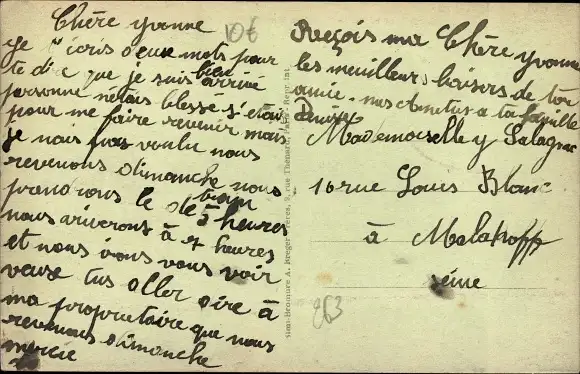 Chère yvonne
Je t'écris deux mots pour
te dire que je suis bien arrivé
personne nétais blesse s'étais
pour me faire revenir mais
je nais pas voulu nous
revenons dimanche nous
prendrons le train de 2 heures
nous ariverons à 7 heures
et nous irons vous voir
veux tus aller dire à
ma propriétaire que nous
revenons dimanche
mercie
10€
Reçois ma Chère yvonne
les meuilleurs baisers de ton
amie. nos Amitus a ta famille
Denise
Mademoiselle y Salagnac
16 rue Louis Blanc
à Malakoff
seine
263
sion-Bromure A. Breger Frères, 9, rue Thénard, Paris. Repr. int.